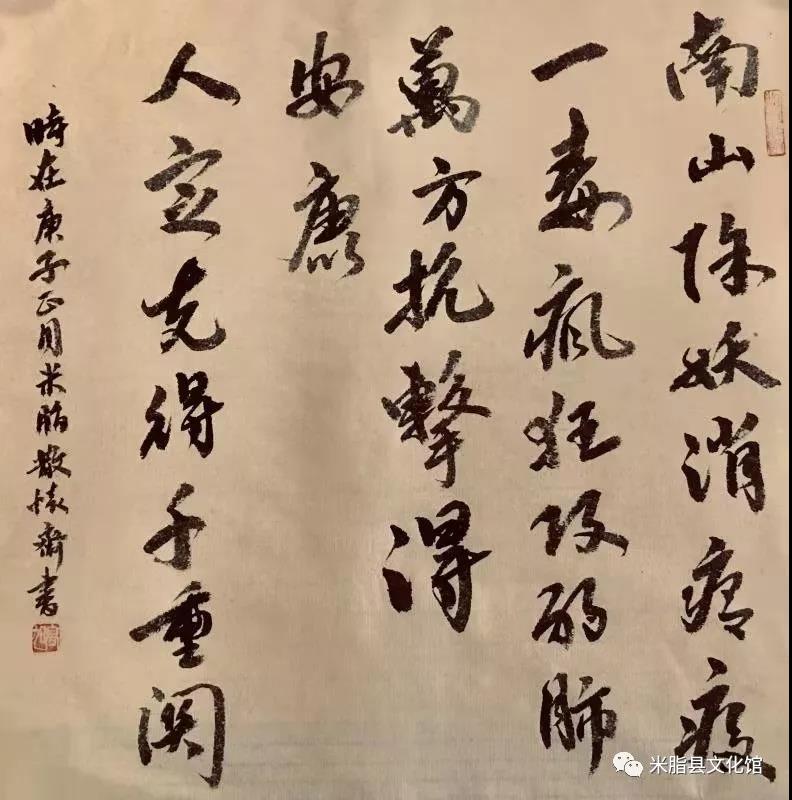 南山除妖消疫
一毒疯狂攻弱肺
萬方抗擊得
安康
人定克得千重関
時在庚子正月米脂懷齋書
米脂县文化馆